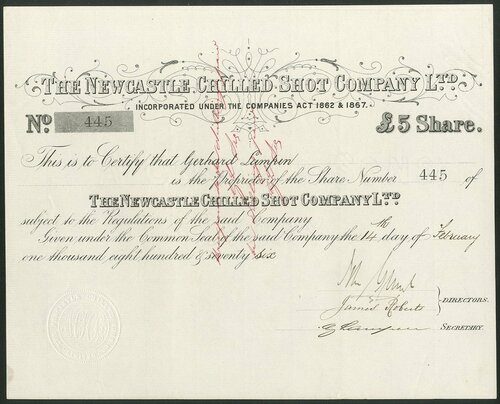 THE NEWCASTLE CHILLED SHOT COMPANY LTD.
INCORPORATED UNDER THE COMPANIES ACT 1862 & 1867.
No. 445 £5 Share.
This is to Certify that Gerhard Lampen
is the Proprietor of the Share Number 445 of
THE NEWCASTLE CHILLED SHOT COMPANY LTD.
subject to the Regulations of the said Company
Given under the Common Seal of the said Company the 14th day of February
one thousand eight hundred & seventy six
James Roberts
DIRECTORS.
SECRETARY.